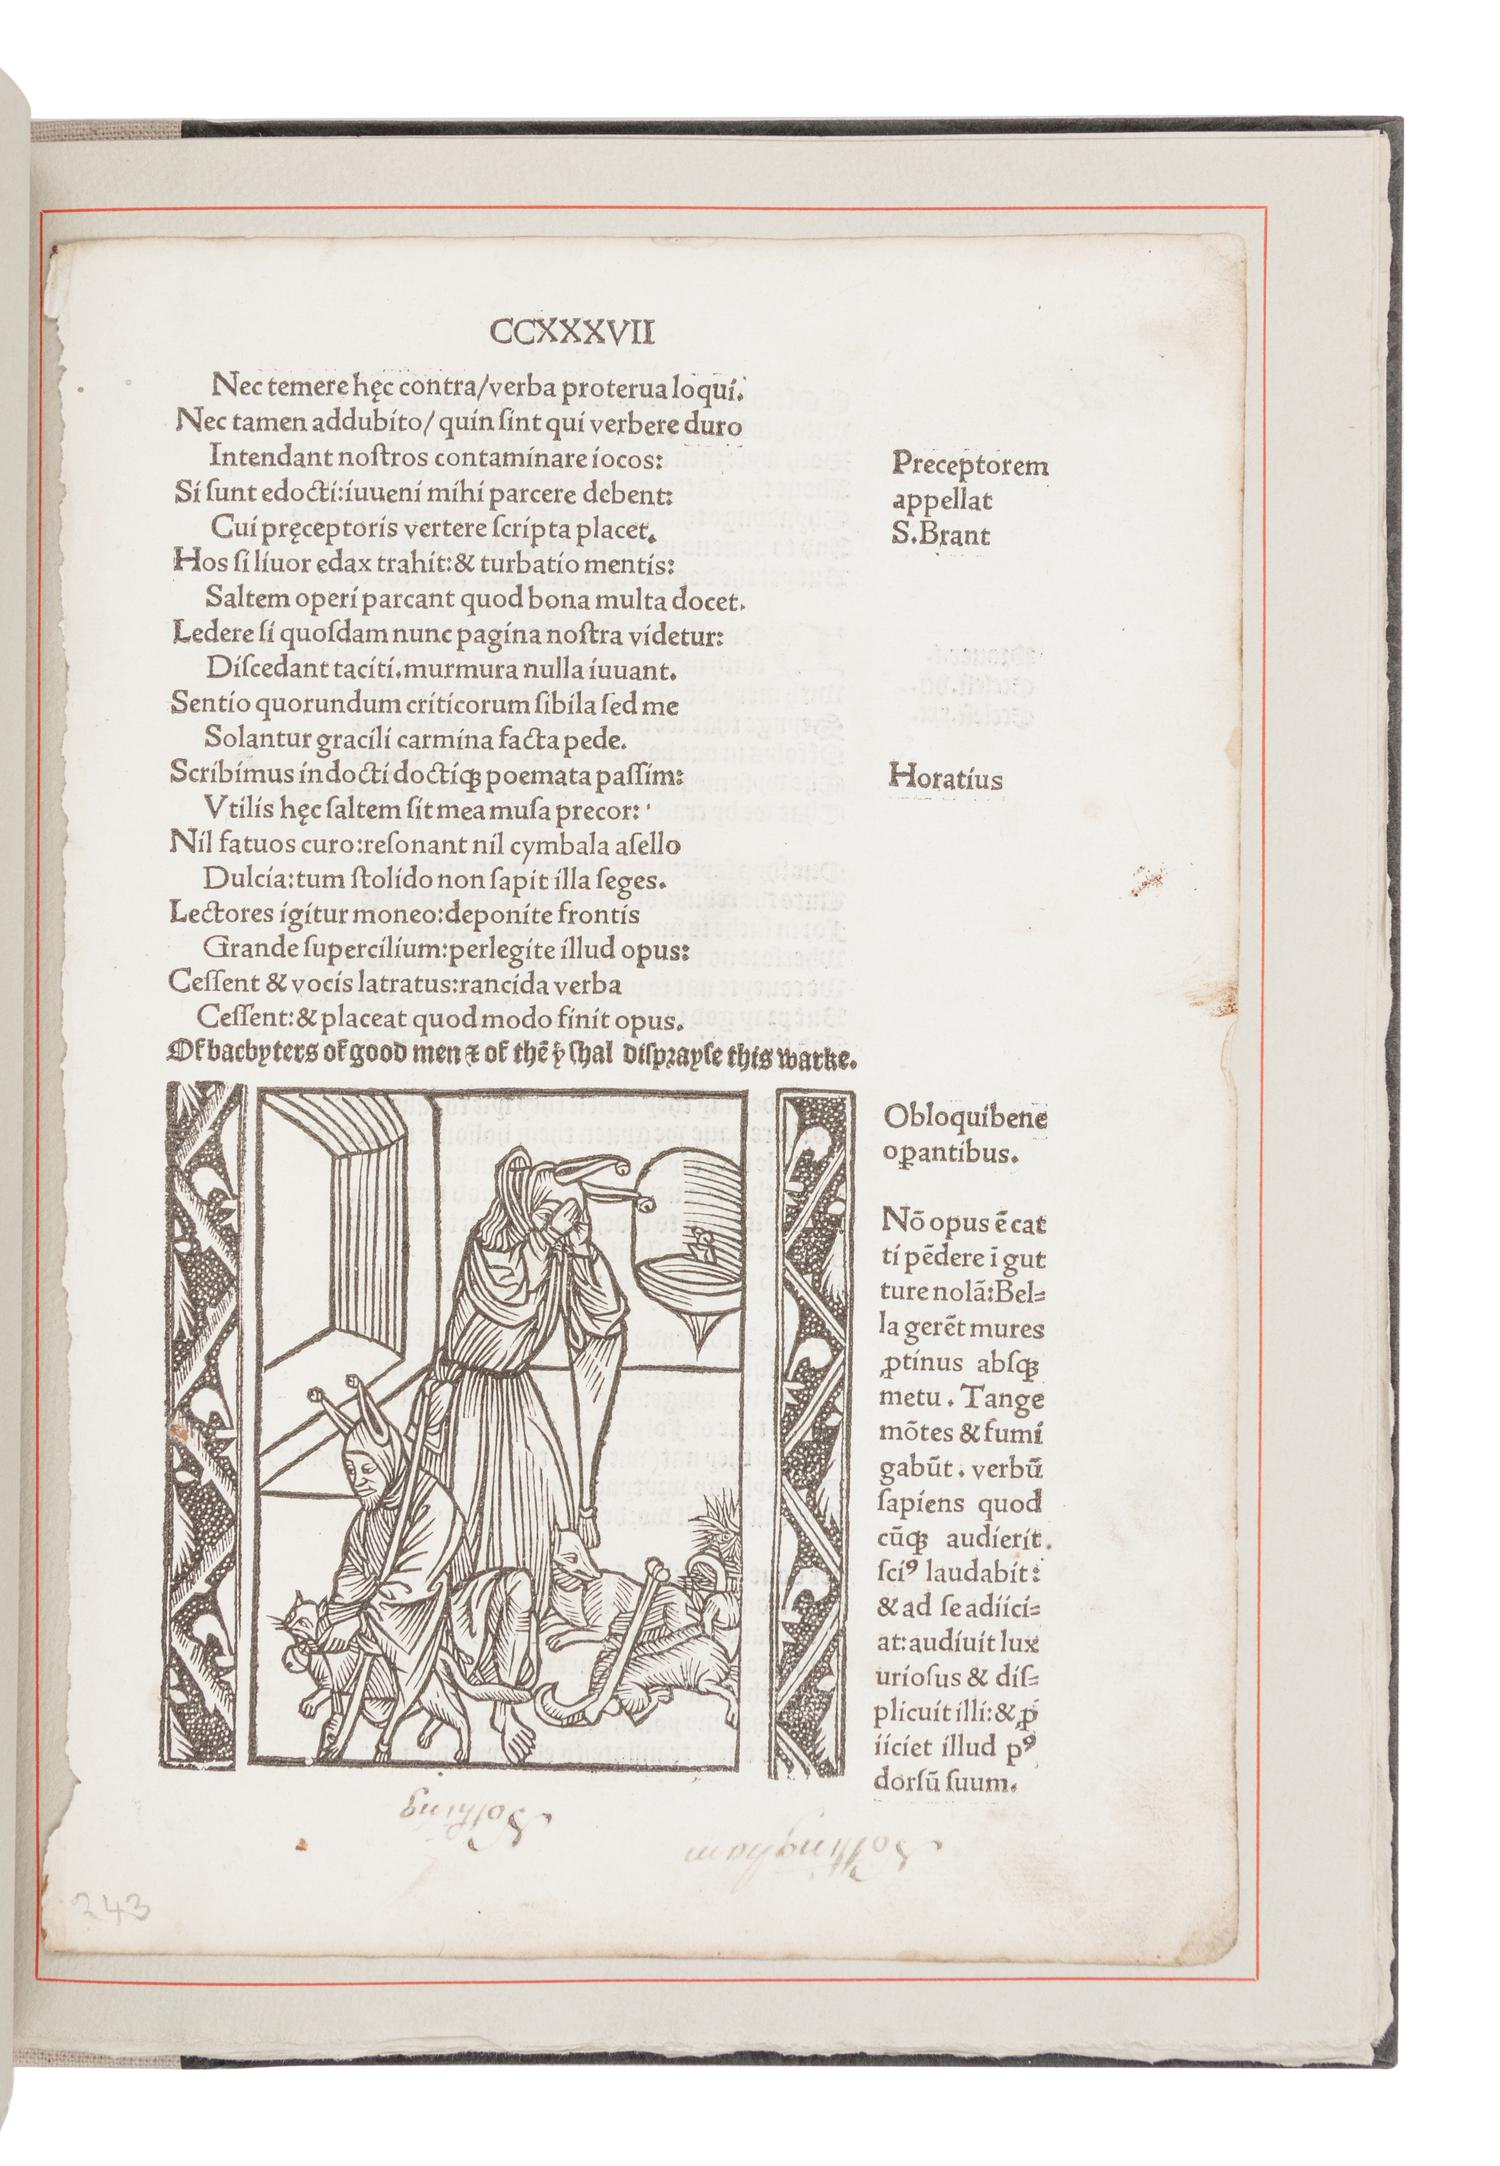 CCXXXVII
Nec temere hęc contra/verba proterua loqui.
Nec tamen addubito/ quin ſint qui verbere duro
Intendant noſtros contaminare iocos:
Si ſunt edocti:iuueni mihi parcere debent:
Cui pręceptoris vertere ſcripta placet.
Hos ſi liuor edax trahit:& turbatio mentis:
Saltem operi parcant quod bona multa docet.
Ledere ſi quoſdam nunc pagina noſtra videtur:
Diſcedant taciti.murmura nulla iuuant.
Sentio quorundum criticorum ſibila ſed me
Solantur gracili carmina facta pede.
Scribimus indocti doctiqꝫ poemata paſſim:
Vtilis hęc ſaltem ſit mea muſa precor:
Nil fatuos curo:reſonant nil cymbala aſello
Dulcia:tum ſtolido non ſapit illa ſeges.
Lectores igitur moneo:deponite frontis
Grande ſupercilium:perlegite illud opus:
Ceſſent & vocis latratus:rancida verba
Ceſſent:& placeat quod modo finit opus.
Preceptorem
appellat
S.Brant
Horatius
Of bacbyters of good men ⁊ of thē yͭ ſhal diſprayſe this warke.
Obloqui bene
oꝑantibus.
Nō opus ē cat
ti pēdere ī gut
ture nolā:Bel=
la gerēt mures
ꝓtinus abſqꝫ
metu. Tange
mōtes & fumi
gabūt. verbū
ſapiens quod
cūqꝫ audierit.
ſciꝰ laudabit:
& ad ſe adiici=
at:audiuit lux
urioſus & diſ=
plicuit illi:& ꝓ
iiciet illud pꝰ
dorſū ſuum.
Notting
Nottingham
243